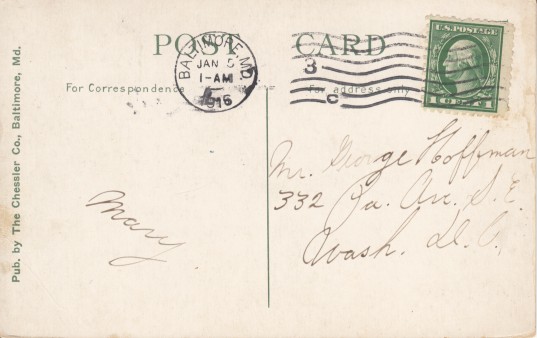 POST CARD
BALTIMORE, MD.
JAN 5
1-AM
1916
3
C
U.S. POSTAGE
1 CENT 1
For Correspondence
For address only
Mr. George Hoffman
332 Pa. Ave. S. E.
Wash. D. C.
Mary
Pub. by The Chessler Co., Baltimore, Md.